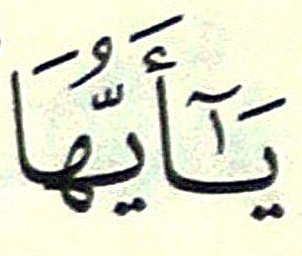 يَآأَيُّهَا